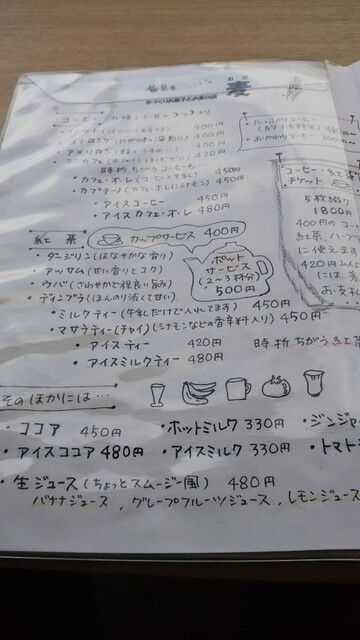 麦
コーヒー
400円
・ストロング
400円
・アメリカン
400円
420円
時折ちがうコーヒーも
・カフェ・オ・レ(コーヒーと牛乳) 450円
・カプチーノ(カフェ・オ・レにシナモン) 450円
・アイスコーヒー 450円
・アイスカフェ・オ・レ 480円
コーヒー・紅茶
チケット
5枚綴り
1800円
400円のコー
紅茶、ハーブ
に使えます
紅茶
カップサービス 400円
・ダージリン(はなやかな香り)
・アッサム(甘い香りとコク)
・ウバ(さわやかで程良い旨み)
・ディンブラ(ほんのり淡くて甘い)
ポット
サービス
(2~3杯分)
500円
・ミルクティー(牛乳だけで入れてます) 450円
・マサラティー(チャイ)(シナモンなどの香辛料入り) 450円
・アイスティー 420円
・アイスミルクティー 480円
時折ちがう紅茶
そのほかには…
・ココア 450円
・ホットミルク 330円
・ジンジャー
・アイスココア 480円
・アイスミルク 330円
・トマト
・生ジュース(ちょっとスムージー風) 480円
バナナジュース、グレープフルーツジュース、レモンジュース